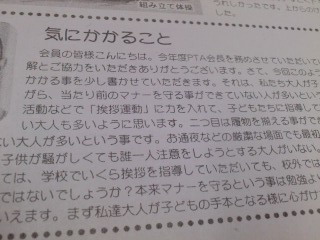 組み立て体操
した。上からの
気にかかること
会員の皆様こんにちは。今年度PTA会長を務めさせていただいて
解とご協力をいただきありがとうございます。さて、今回このよう
かかる事を少し書かせていただきます。それは、私たち大人が子
がら、当たり前のマナーを守る事ができていない人が多いという
活動などで「挨拶運動」に力を入れて、子どもたちに指導して
い大人も多いように思います。二つ目は履物を揃える事ができ
ない大人が多いという事です。お通夜などの厳粛な場面でも最初
子供が騒がしくても誰一人注意をしようとする大人がいない。
ては、学校でいくら挨拶を指導していただいても、校外では
ではないでしょうか?本来マナーを守るという事は勉強よ
いえます。まず私達大人が子どもの手本となる様に心がけ